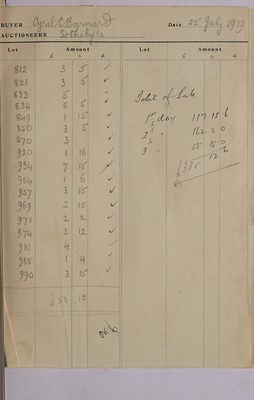 BUYER Cyril C. Barnard Date 25 July 1939
AUCTIONEERS Sotheby's
Lot Amount Lot Amount
£ s. d. £ s. d.
812 3 5 ✓
821 3 5 ✓
833 5 ✓
834 5 5 ✓
849 1 15 ✓
850 3 5 ✓
870 3 ✓
920 1 16 ✓
934 7 15 ✓
954 1 6 ✓
957 3 15 ✓
969 2 15 ✓
971 2 2 ✓
974 2 12 ✓
981 4 ✓
985 1 4 ✓
990 3 15 ✓
£55 15
Total of Sale
1st day 117 15 6
2d " 162 2 0
3 " 55 15 0
£335 12 6